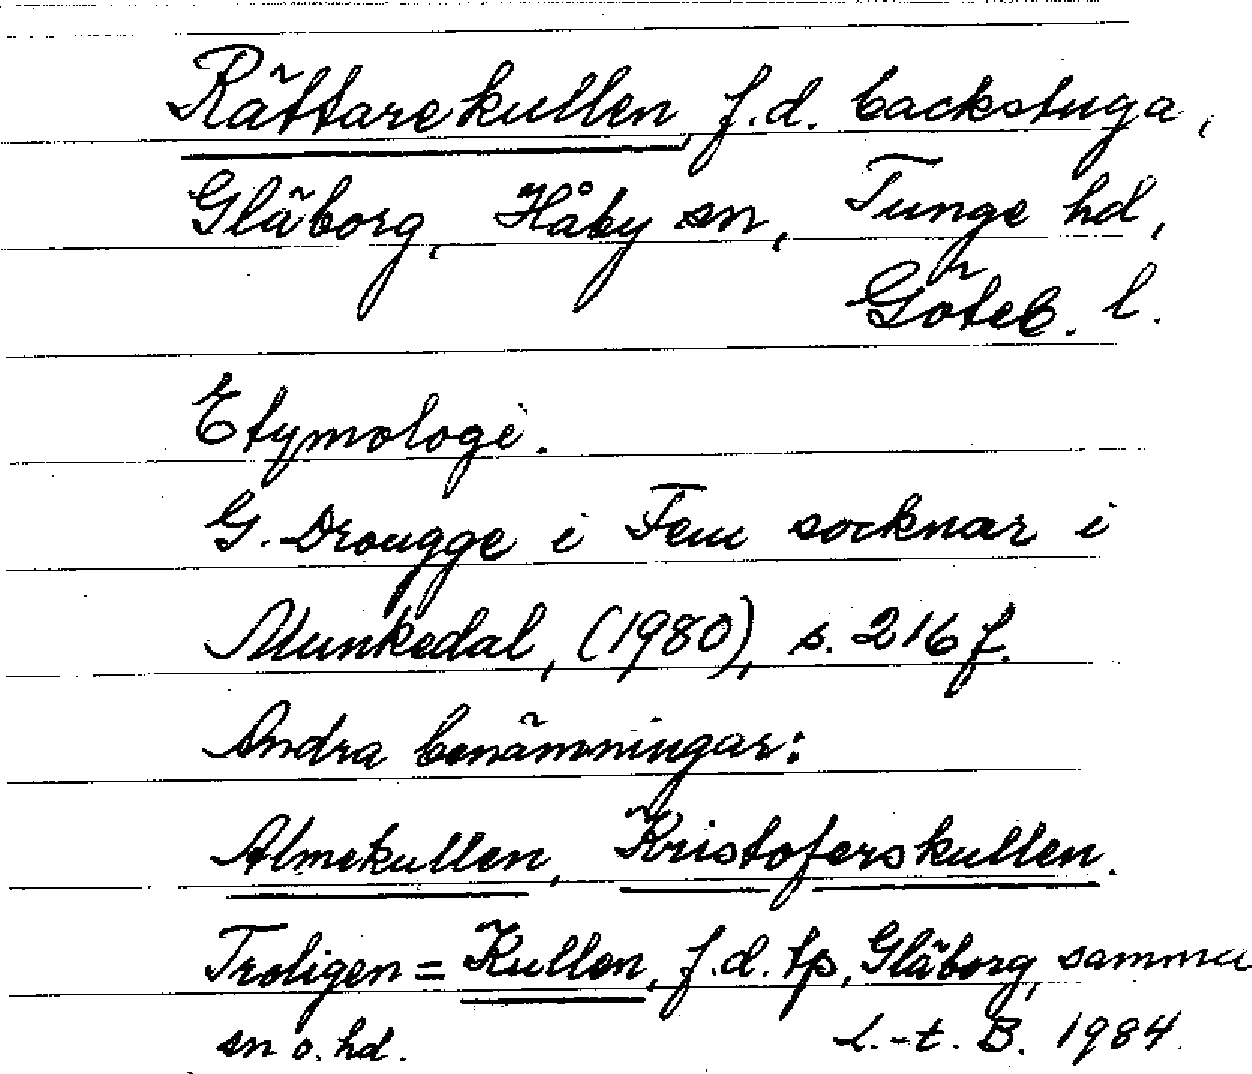 Rättarekullen, f.d. backstuga,
Gläborg, Håby sn, Tunge hd,
Göteb. l.
Etymologi.
G. Drougge i Fem socknar i
Munkedal, (1980), s. 216 f.
Andra benämningar:
Almekullen, Kristoferskullen.
Troligen = Kullen, f.d. tp, Gläborg, samma
sn o. hd. L.-t. B. 1984.